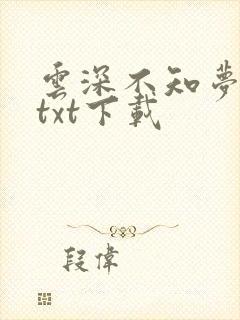 雲深不知夢
txt下載
段偉